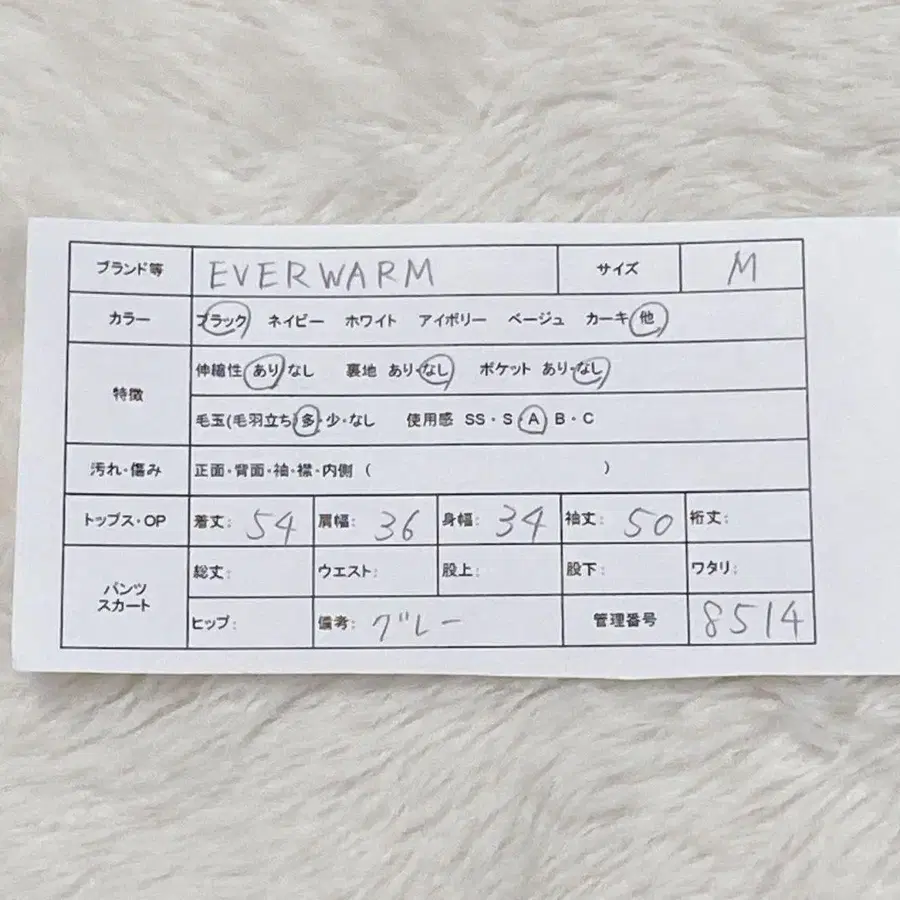 ブランド等 EVERWARM サイズ M
カラー ブラック ネイビー ホワイト アイボリー ベージュ カーキ 他
特徴 伸縮性 あり なし 裏地 あり・なし ポケット あり・なし
毛玉(毛羽立ち) 多・少・なし 使用感 SS・S・A・B・C
汚れ・傷み 正面・背面・袖・襟・内側 ( )
トップス・OP 着丈: 54 肩幅: 36 身幅: 34 袖丈: 50 裄丈:
パンツ スカート 総丈: ウエスト: 股上: 股下: ワタリ:
ヒップ: 備考: グレー 管理番号 8514